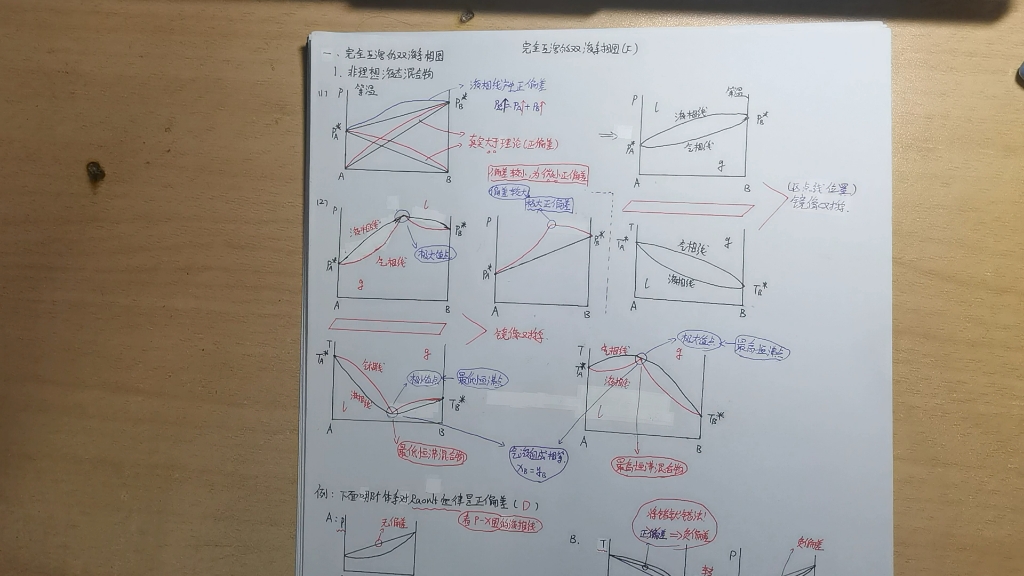 完全互溶的双液系相图(上)
一、完全互溶的双液系相图
1. 非理想液态混合物
(1) P 等温
液相线产生正偏差
真实大于理论(正偏差)
P_A* P_B*
A B
⇒
P 等温
l 液相线
气相线 g
P_A* P_B*
A B
偏差较小,为一般正偏差
偏差较大
极大正偏差
(区点线位置)
镜像对称
(2) P l
液相线
气相线
极大值点
g
P_A* P_B*
A B
P
P_A* P_B*
A B
T 气相线 g
T_A*
l 液相线
T_B*
A B
镜像对称
T g
T_A* 气相线
液相线
l
极小值点
最低恒沸点
T_B*
A B
最低恒沸混合物
T 气相线 g
T_A* 液相线
l
极大值点
最高恒沸点
T_B*
A B
气液组成相等
x_B = y_B
最高恒沸混合物
例:下面哪些体系对Raoult定律是正偏差(D)
看P-X图的液相线
A: P 无偏差
B. T
正偏差 ⇒ 负偏差
P
负偏差